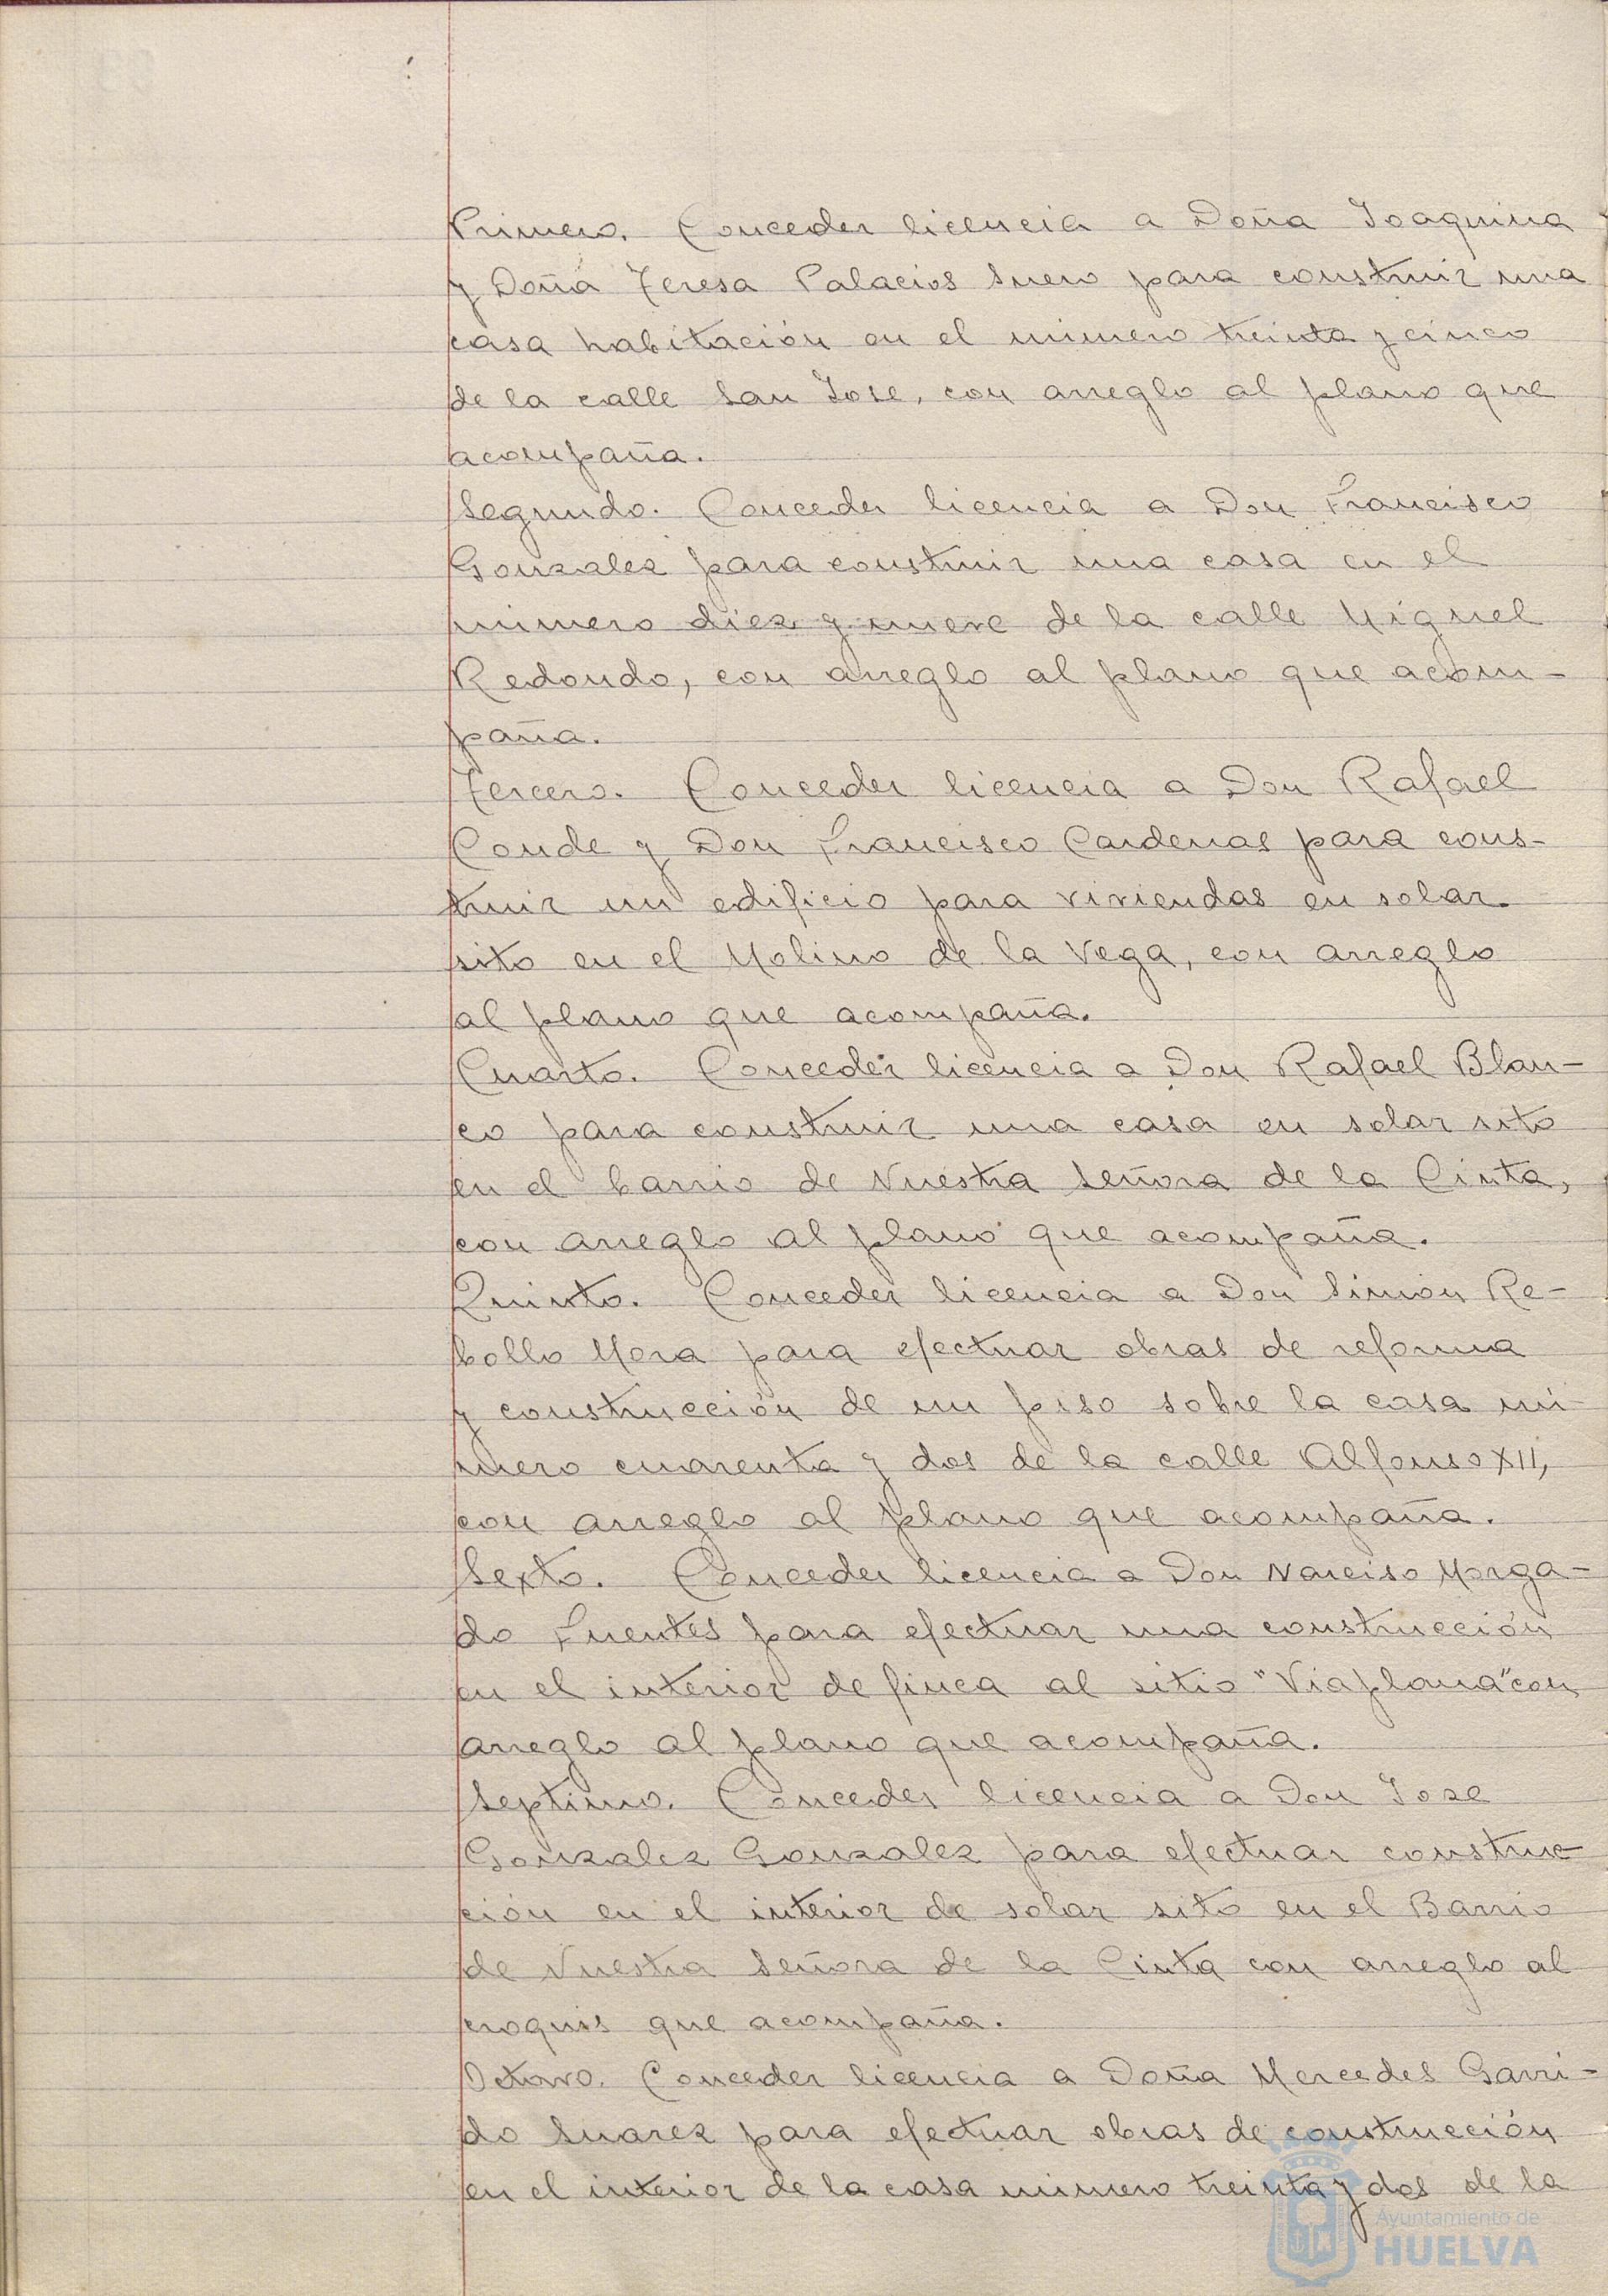 Primero. Conceder licencia a Doña Joaquina
y Doña Teresa Palacios Suero para construir una
casa habitación en el numero treinta y cinco
de la calle San Jose, con arreglo al plano que
acompaña.
Segundo. Conceder licencia a Don Francisco
Gonzalez para construir una casa en el
numero diez y nueve de la calle Miguel
Redondo, con arreglo al plano que acom-
paña.
Tercero. Conceder licencia a Don Rafael
Conde y Don Francisco Cardenas para cons-
truir un edificio para viviendas en solar
sito en el Molino de la Vega, con arreglo
al plano que acompaña.
Cuarto. Conceder licencia a Don Rafael Blan-
co para construir una casa en solar sito
en el barrio de Nuestra Señora de la Cinta,
con arreglo al plano que acompaña.
Quinto. Conceder licencia a Don Simón Re-
bollo Mora para efectuar obras de reforma
y construcción de un piso sobre la casa nú-
mero cuarenta y dos de la calle Alfonso XII,
con arreglo al plano que acompaña.
Sexto. Conceder licencia a Don Narciso Morga-
do Fuentes para efectuar una construcción
en el interior de finca al sitio "Viaplana" con
arreglo al plano que acompaña.
Septimo. Conceder licencia a Don Jose
Gonzalez Gonzalez para efectuar construc-
ción en el interior de solar sito en el Barrio
de Nuestra Señora de la Cinta con arreglo al
croquis que acompaña.
Octavo. Conceder licencia a Doña Mercedes Garri-
do Suarez para efectuar obras de construcción
en el interior de la casa numero treinta y dos de la
Ayuntamiento de
HUELVA